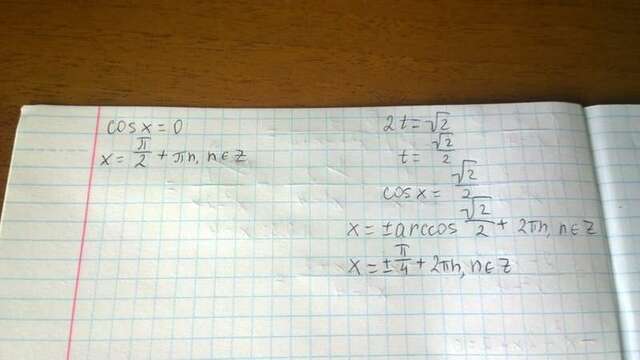 cos x = 0
x = π/2 + πn, n ∈ Z
2t = √2
t = √2/2
cos x = √2/2
x = ± arccos √2/2 + 2πn, n ∈ Z
x = ± π/4 + 2πn, n ∈ Z